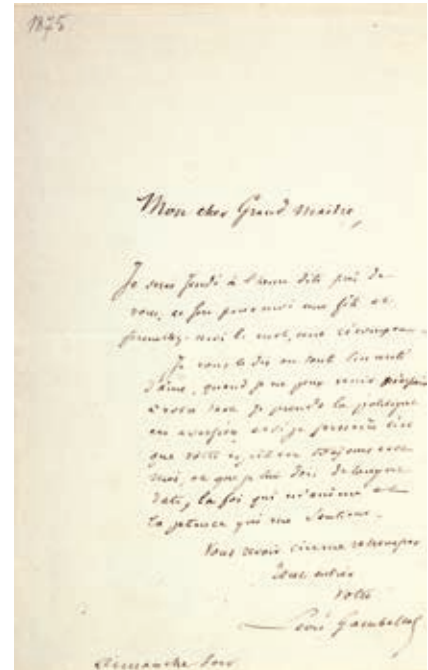 1875
Mon cher Grand Maître,
Je serai Jeudi à l'heure dite près de
vous, ce sera pour moi une fête et
permettez-moi le mot, une
Je vous le dis en toute
d'âme, quand je ne puis venir
à vous je prends la politique
en aversion, et si je
que votre est toujours avec
moi, et que je lui dois de longue
date, la foi qui m'anime et
la patience qui me soutient.
Vous revoir
tout entier
Votre
Léon Gambetta
Dimanche soir